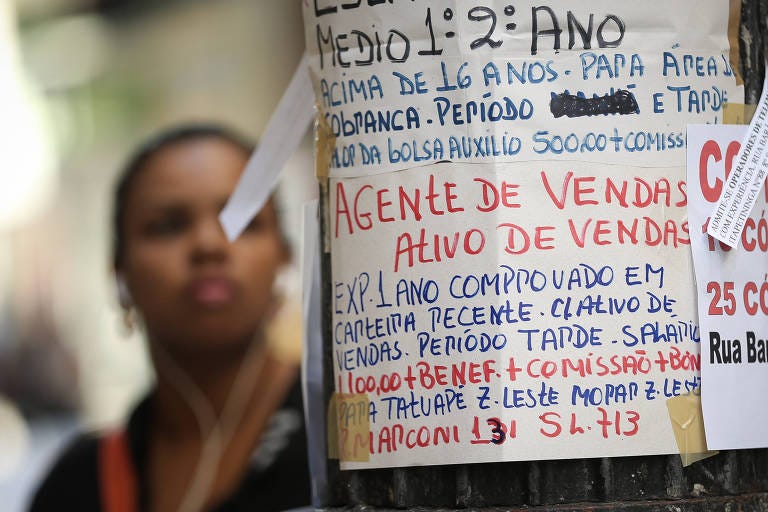 MEDIO 1º 2º ANO
ACIMA DE 16 ANOS. PARA ÁREA D
COBRANCA. PERÍODO E TARDE
VALOR DA BOLSA AUXILIO 500,00 + COMISS
AGENTE DE VENDAS
ATIVO DE VENDAS
EXP. 1 ANO COMPROVADO EM
CARTEIRA RECENTE. C/ ATIVO DE
VENDAS. PERÍODO TARDE - SALÁRIO
1100,00 + BENEF. + COMISSÃO + BÔN
PARA TATUAPÉ Z. LESTE MORAR Z. LESTE
R MARCONI 131 SL. 713
ADMITE-SE OPERADORES DE TELE
COM EXPERIENCIA. RUA BAR
ITAPETININGA
CO
10 CÓ
25 CÓ
Rua Bar